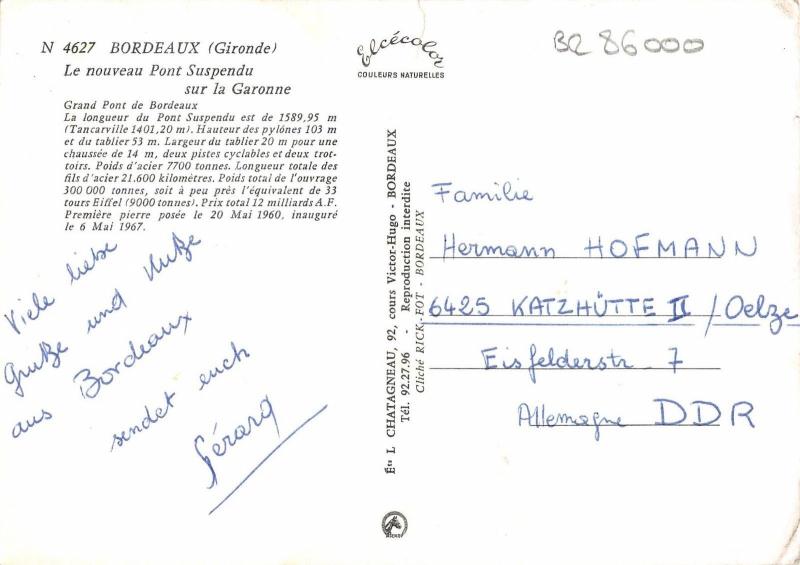 N 4627 BORDEAUX (Gironde)
Le nouveau Pont Suspendu
sur la Garonne
Grand Pont de Bordeaux
La longueur du Pont Suspendu est de 1589,95 m
(Tancarville 1401,20 m). Hauteur des pylônes 103 m
et du tablier 53 m. Largeur du tablier 20 m pour une
chaussée de 14 m, deux pistes cyclables et deux trot-
toirs. Poids d'acier 7700 tonnes. Longueur totale des
fils d'acier 21.600 kilomètres. Poids total de l'ouvrage
300 000 tonnes, soit à peu près l'équivalent de 33
tours Eiffel (9000 tonnes). Prix total 12 milliards A.F.
Première pierre posée le 20 Mai 1960, inauguré
le 6 Mai 1967.
Viele liebe
Gruße und
aus Bordeaux
sendet euch
Gérard
Elcécolor
COULEURS NATURELLES
Éts L CHATAGNEAU, 92, cours Victor-Hugo - BORDEAUX
Tél. 92.27.96 - Reproduction interdite
Cliché RICK-FOT - BORDEAUX
BR 86000
Familie
Hermann HOFMANN
6425 KATZHÜTTE II / Oelze
Eisfelderstr 7
Allemagne DDR